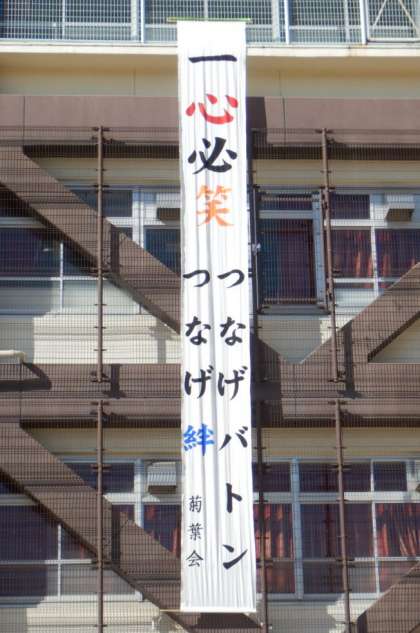 一心必笑
つなげバトン
つなげ絆
菊葉会